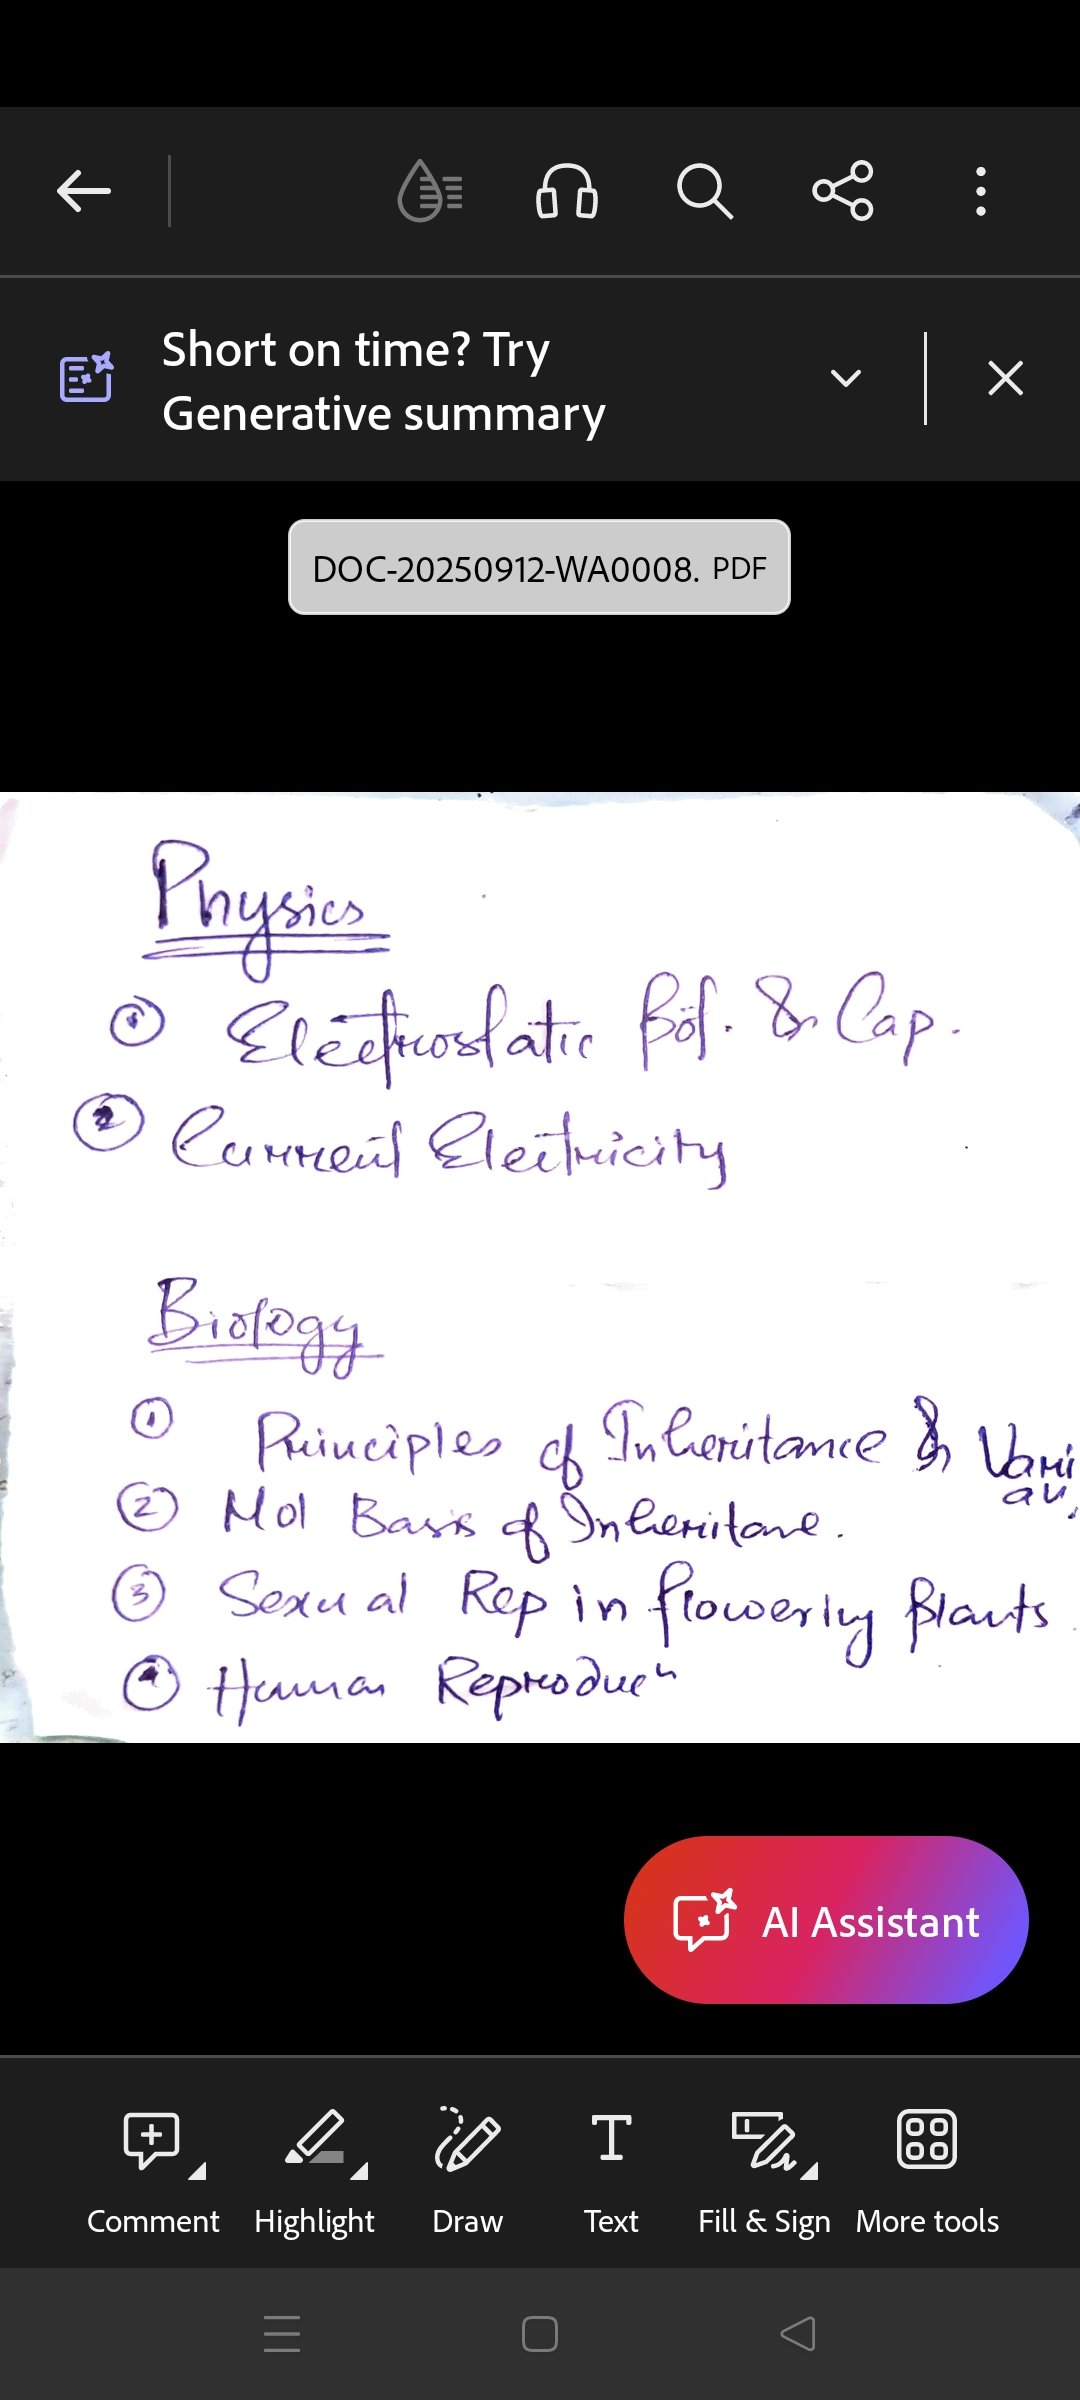 Short on time? Try
Generative summary
DOC-20250912-WA0008. PDF
Physics
① Electrostatic Pot. & Cap.
② Current Electricity
Biology
① Principles of Inheritance & Vari
an,
② Mol Basis of Inheritane.
③ Sexual Rep in flowering Plants.
④ Human Reproducn
AI Assistant
Comment Highlight Draw Text Fill & Sign More tools